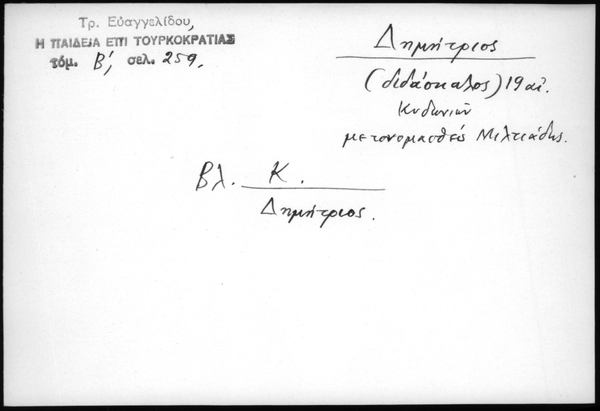 Τρ. Εὐαγγελίδου,
Η ΠΑΙΔΕΙΑ ΕΠΙ ΤΟΥΡΚΟΚΡΑΤΙΑΣ
τόμ. Β', σελ. 259.
Δημήτριος
(διδάσκαλος) 19 αἰ.
Κυδωνιῶν
μετονομασθείς Μιλτιάδης.
Βλ. Κ.
Δημήτριος.